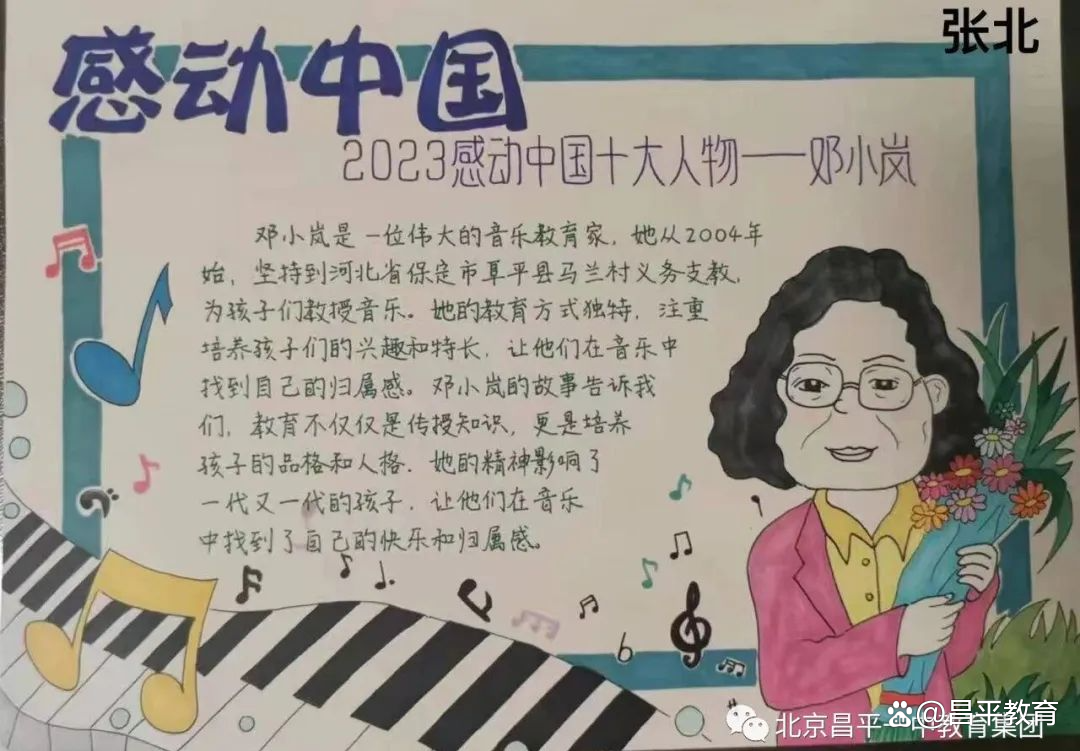 张北
感动中国
2023感动中国十大人物——邓小岚
邓小岚是一位伟大的音乐教育家,她从2004年
始,坚持到河北省保定市阜平县马兰村义务支教,
为孩子们教授音乐。她的教育方式独特,注重
培养孩子们的兴趣和特长,让他们在音乐中
找到自己的归属感。邓小岚的故事告诉我
们,教育不仅仅是传授知识,更是培养
孩子的品格和人格.她的精神影响了
一代又一代的孩子,让他们在音乐
中找到了自己的快乐和归属感。
昌平教育
北京昌平一中教育集团